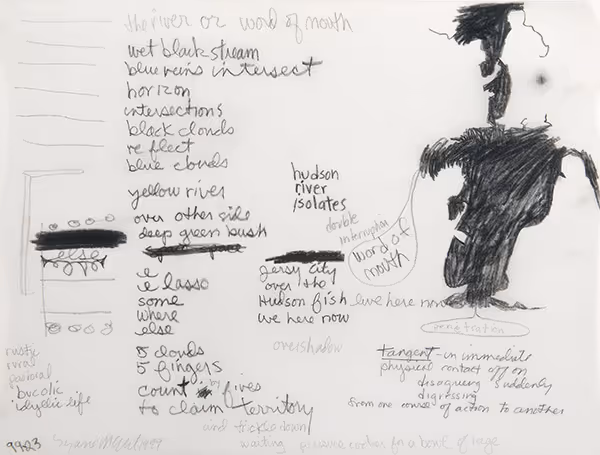 the river or word of mouth
wet black stream
blue veins intersect
horizon
intersections
black clouds
reflect
blue clouds
yellow river
over other side
deep green bush
else
e
e lasso
some
where
else
8 clouds
5 fingers
count by fives
to claim territory
and trickle down
waiting for a bowl of rage
hudson
river
isolates
double
interruption
word of
mouth
jersy city
over the
Hudson fish live here now
we here now
overshadow
penetration
tangent - in immediate
physical contact off on
disagreeing suddenly
digressing
from one course of action to another
rustic
rural
pastoral
bucolic
idyllic life
9923